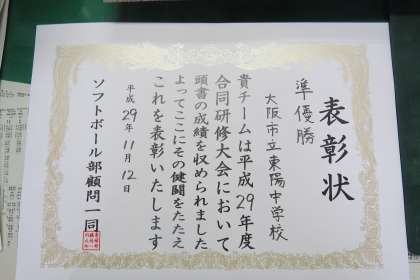 表彰状
準優勝
大阪市立東陽中学校
貴チームは平成29年度
合同研修大会において
頭書の成績を収められました
よってここにその健闘をたたえ
これを表彰いたします
平成29年11月12日
ソフトボール部顧問一同